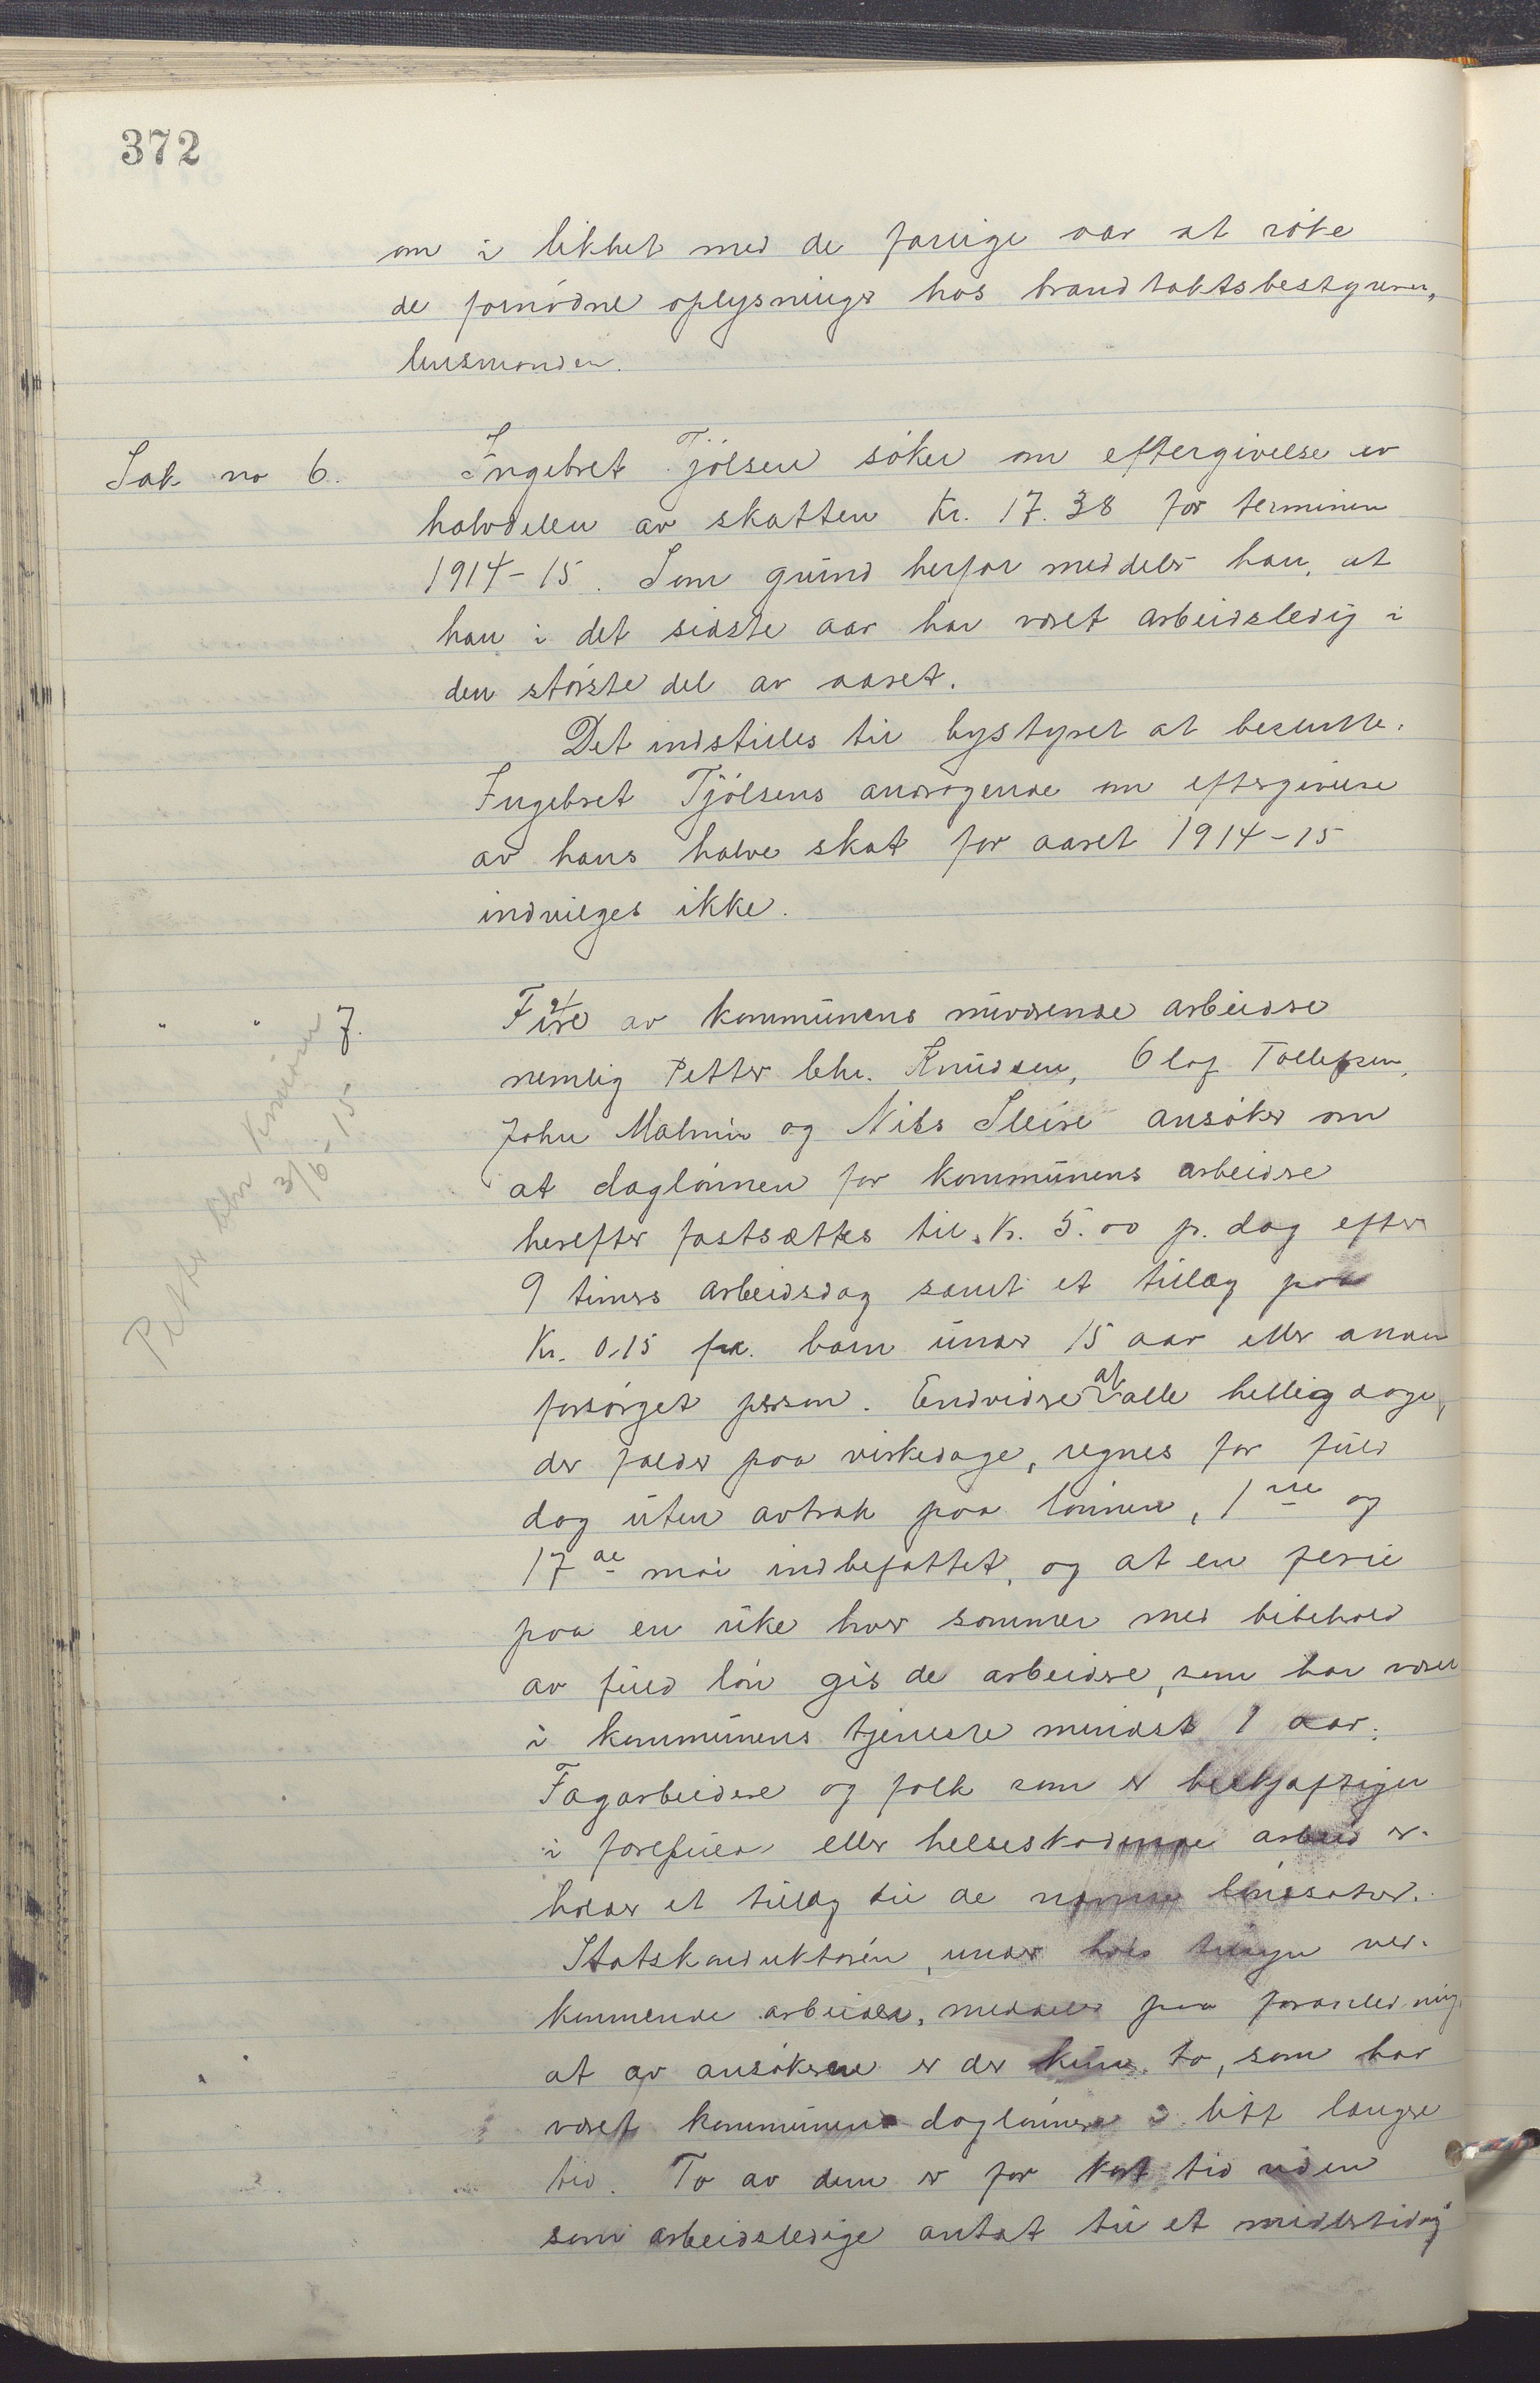 372
om i likhet med de forrige aar at söke
de fornödne oplysninger hos brandtakstbestyreren,
lensmanden.
Sak no 6. Ingebret Tjölsen söker om eftergivelse av
halvdelen av skatten Kr. 17.38 for terminen
1914-15. Som grund herfor meddeler han, at
han i det sidste aar har været arbeidsledig i
den störste del av aaret.
Det indstilles til bystyret at beslutte:
Ingebret Tjölsens andragende om eftergivelse
av hans halve skat for aaret 1914-15
indvilges ikke.
" " 7. Fire av kommunens nuværende arbeidere
nemlig Petter Chr. Knudsen, Olaf Tollefsen,
John Malmin og Nils Sleire ansöker om
at daglönnen for kommunens arbeidere
herefter fastsættes til Kr. 5.00 p. dag efter
9 timers arbeidsdag samt et tillæg paa
Kr. 0.15 pr. barn under 15 aar eller anden
forsörget person. Endvidere at alle helligdage,
der falder paa virkedage, regnes for fuld
dag uten avtrak paa lönnen, 1ste og
17de mai indbefattet, og at en ferie
paa en uke hver sommer med bibehold
av fuld lön gis de arbeidere, som har været
i kommunens tjeneste mindst 1 aar.
Fagarbeidere og folk som er beskjæftiget
i farefuld eller helseskadende arbeid er-
holder et tillæg til de nævnte lönssatser.
Statskonduktören, under hvis tilsyn ved-
kommende arbeider, meddeler paa foranledning
at av ansökerne er der kun to, som har
været kommunens daglönnere i litt længre
tid. To av dem er for kort tid siden
som arbeidsledige antat til et midlertidig
Petter Chr Knudsen
3/6-15